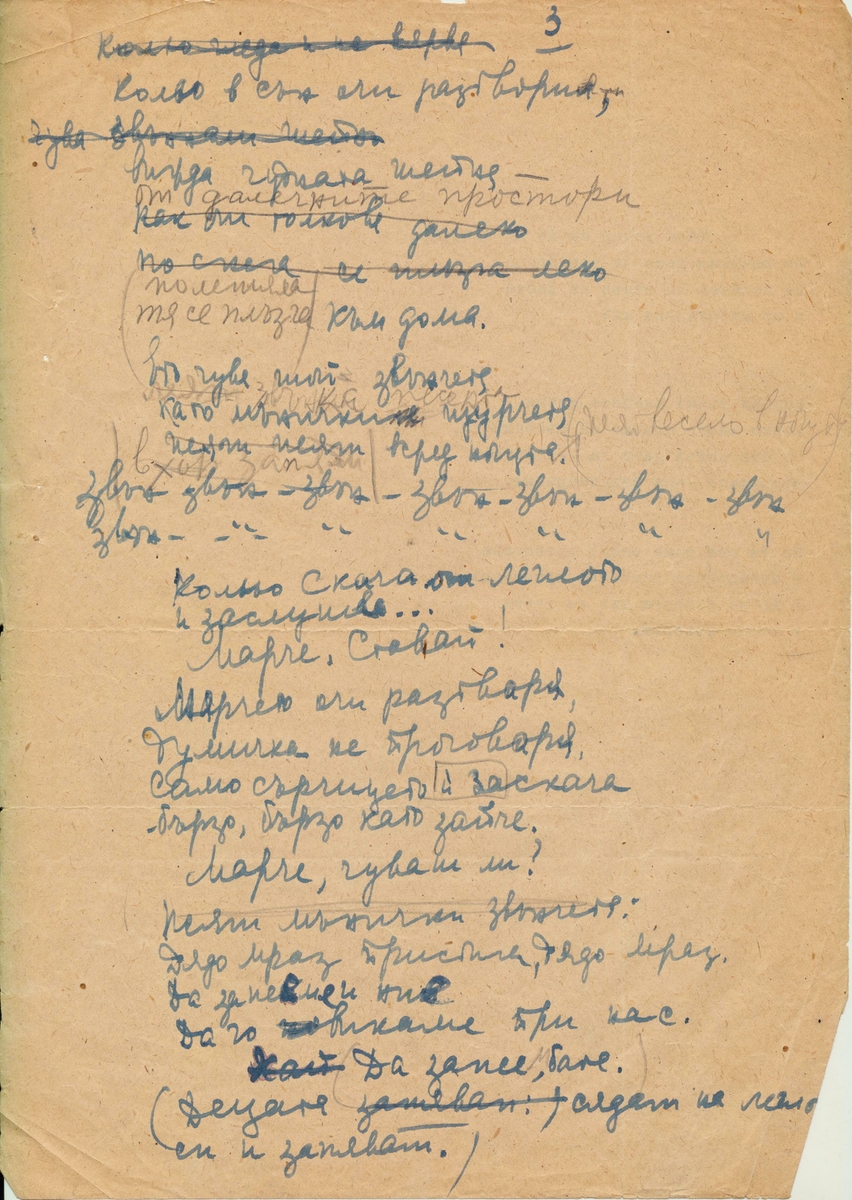 3
Кольо гледа и не вервa
Кольо в сън очи разтвория,
чува звънкали шепот
вижда чудната шейна —
от далечните простори
как от толкова далеко
по снега се плъзга леко
полетяла
тя се плъзга към дома.
Ето чува той звънчета
като мънички щурчета
пеят пеят всред нощта.
(пеят весело в нощта)
в хор запяли
Звън звън – звън – звън – звън – звън – звън
звън – – " – " " " " "
Кольо скача от леглото
и заслушва...
Марче, ставай!
Марчето очи разтваря,
думичка не проговаря,
само сърчицето ѝ заскача
бързо, бързо като зайче.
Марче, чуваш ли?
Пеят мънички звънчета:
Дядо Мраз пристига, Дядо Мраз.
Да запеем ний
Да го повикаме при нас.
Хайде Да запее, бате.
(Децата запяват:) сядат на легло
си и запяват.)